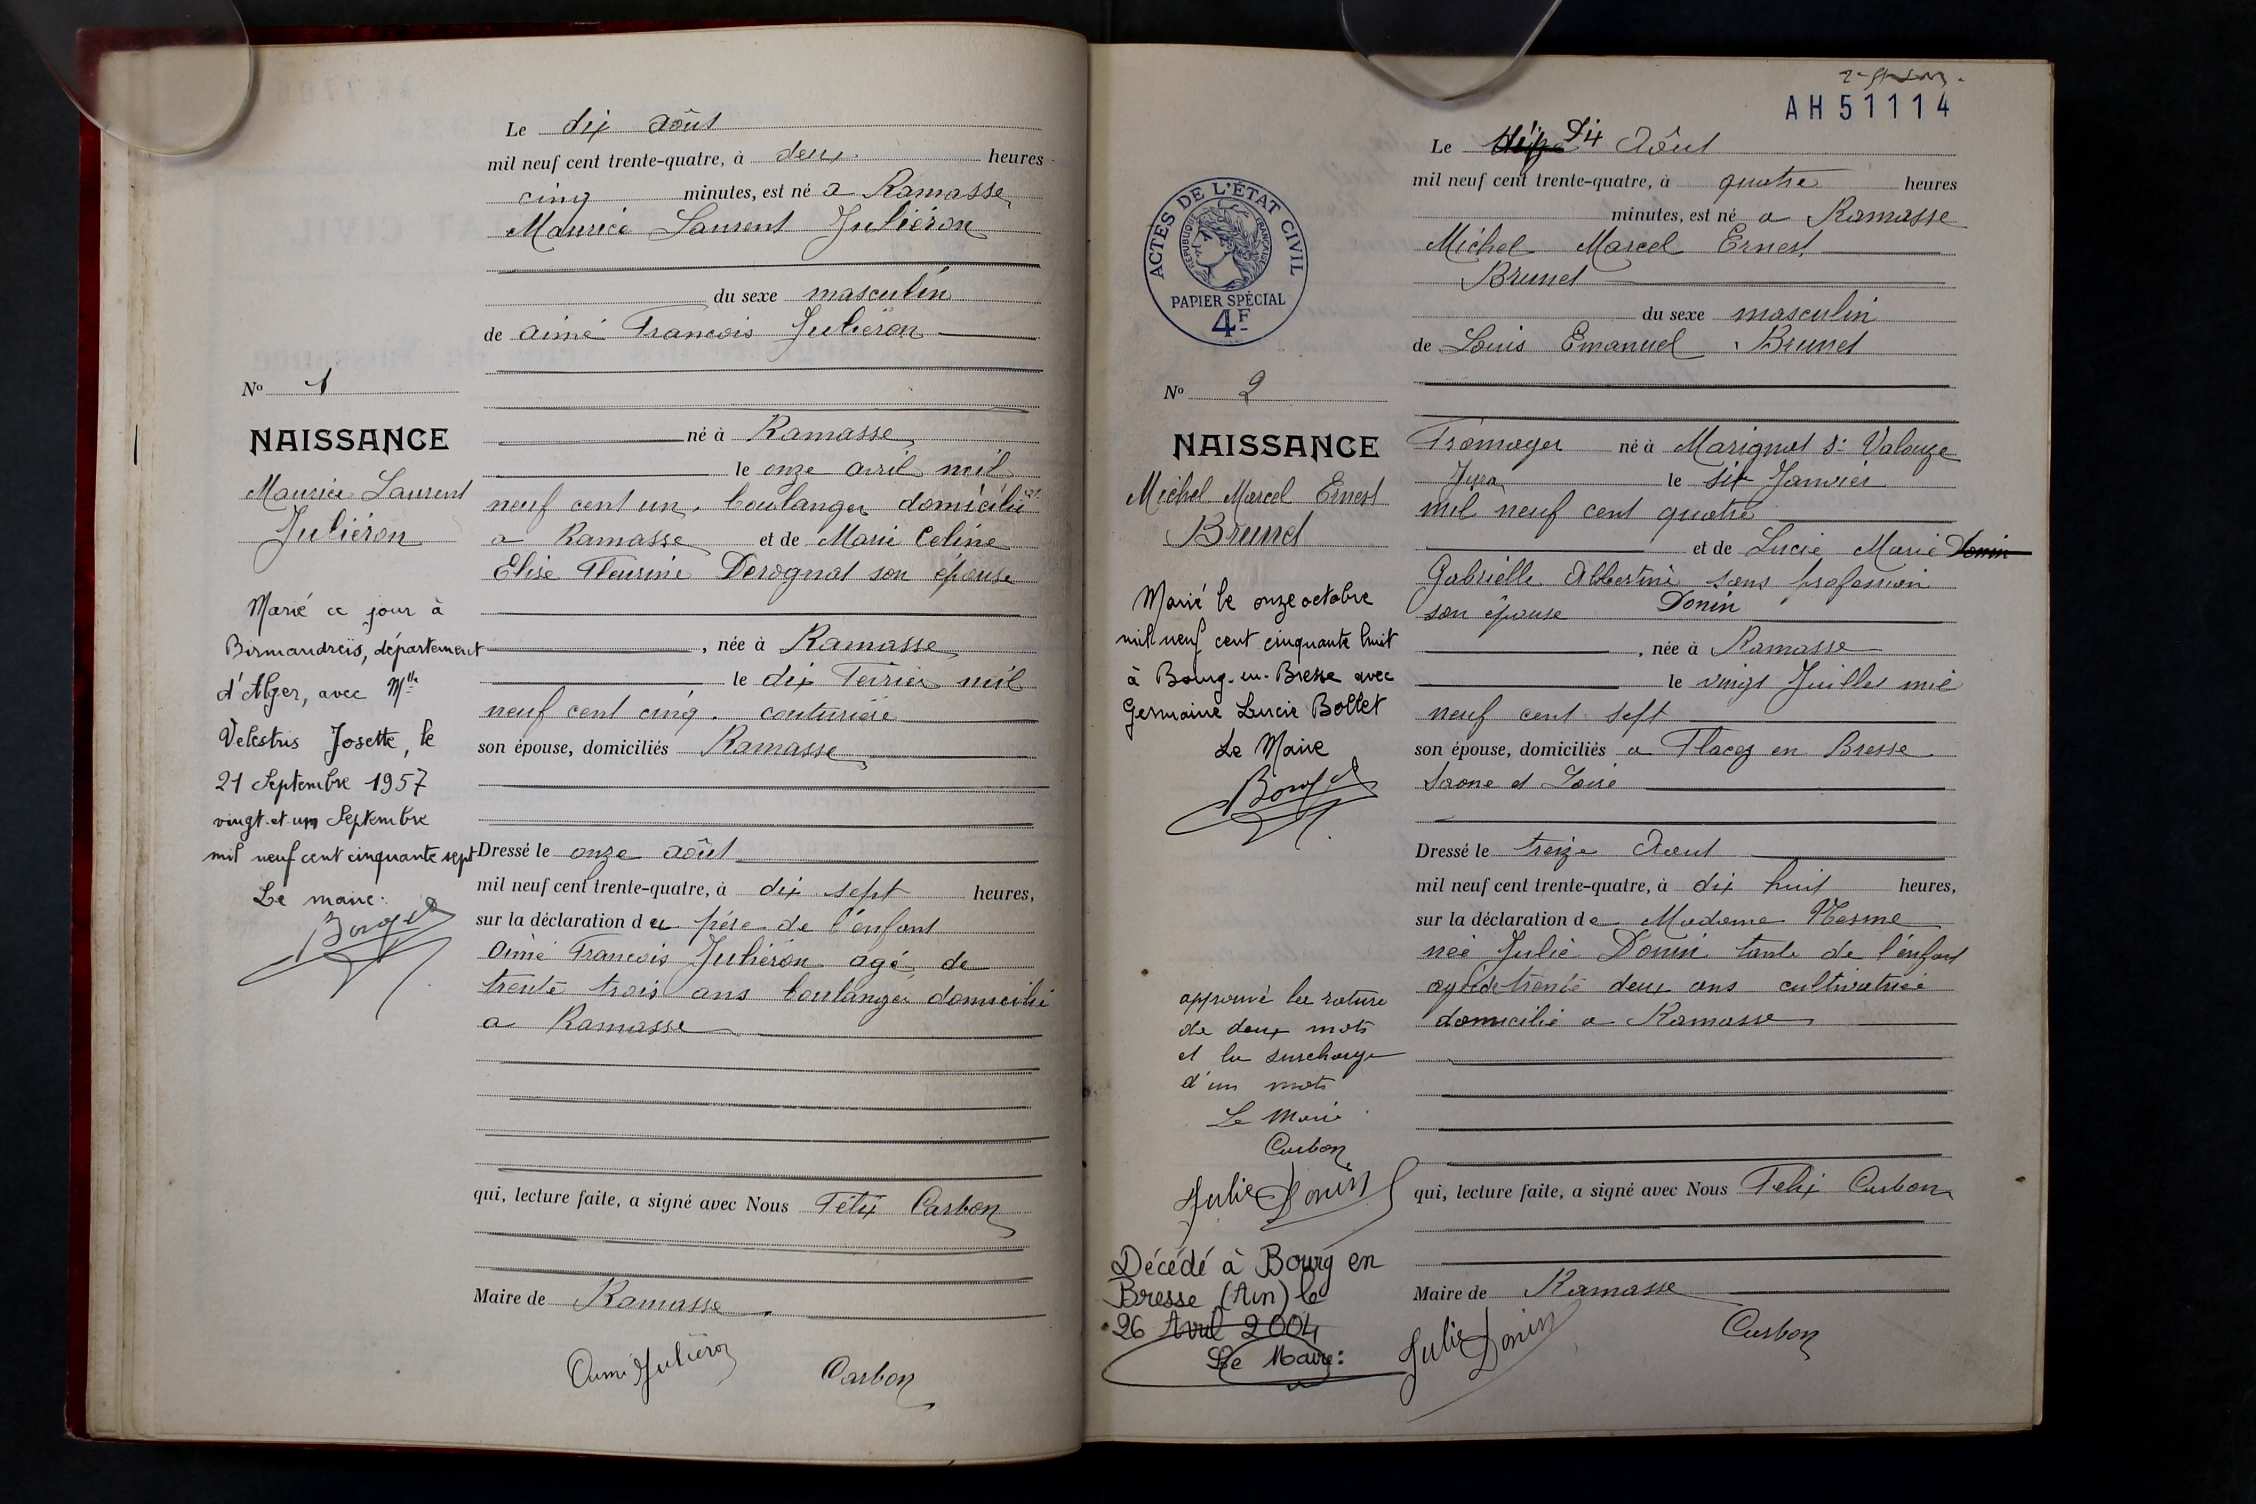 Le dix Août
mil neuf cent trente-quatre, à deux heures
cinq minutes, est né a Ramasse
Maurice Laurent Juliéron
du sexe masculin
de aimé Francois Juliéron
né à Ramasse
le onze avril mil
neuf cent un, boulanger domicilié
a Ramasse et de Marie Celine
Elise Fleurine Derognat son épouse
, née à Ramasse
le dix Fevrier mil
neuf cent cinq. couturière
son épouse, domiciliés Ramasse
Dressé le onze août
mil neuf cent trente-quatre, à dix sept heures,
sur la déclaration du père de l'enfant
Aimé Francois Juliéron agé de
trente trois ans boulanger domicilié
a Ramasse
qui, lecture faite, a signé avec Nous Félix Carbon
Maire de Ramasse
Aimé Juliéron Carbon
No 1
NAISSANCE
Maurice Laurent
Juliéron
Marié ce jour à
Birmandreïs, département
d'Alger, avec Mlle
Velestris Josette, le
21 Septembre 1957
vingt-et-un Septembre
mil neuf cent cinquante sept
Le maire:
AH51114
Le Dix Août
mil neuf cent trente-quatre, à quatre heures
minutes, est né a Ramasse
Michel Marcel Ernest
Brunet
du sexe masculin
de Louis Emanuel Brunet
Fromager né à Marignat St Valouze
Jura le six Janvier
mil neuf cent quatre
et de Lucie Marie Donin
Gabrielle Albertine sans profession
son épouse Donin
, née à Ramasse
le vingt Juillet mil
neuf cent sept
son épouse, domiciliés a Flacey en Bresse
Saone et Loire
Dressé le treize Aout
mil neuf cent trente-quatre, à dix huit heures,
sur la déclaration de Madame Mesme
née Julie Donin tante de l'enfant
agée de trente deux ans cultivatrice
domicilié a Ramasse
qui, lecture faite, a signé avec Nous Felix Carbon
Maire de Ramasse
Julie Donin Carbon
ACTES DE L'ÉTAT CIVIL
RÉPUBLIQUE FRANÇAISE
PAPIER SPÉCIAL
4F
No 2
NAISSANCE
Michel Marcel Ernest
Brunet
Marié le onze octobre
mil neuf cent cinquante huit
à Bourg-en-Bresse avec
Germaine Lucie Bollet
Le Maire
approuvé la rature
de deux mots
et la surcharge
d'un mots
Le Maire
Carbon
Julie Donin
Décédé à Bourg en
Bresse (Ain) le
26 Avril 2004
Le Maire: